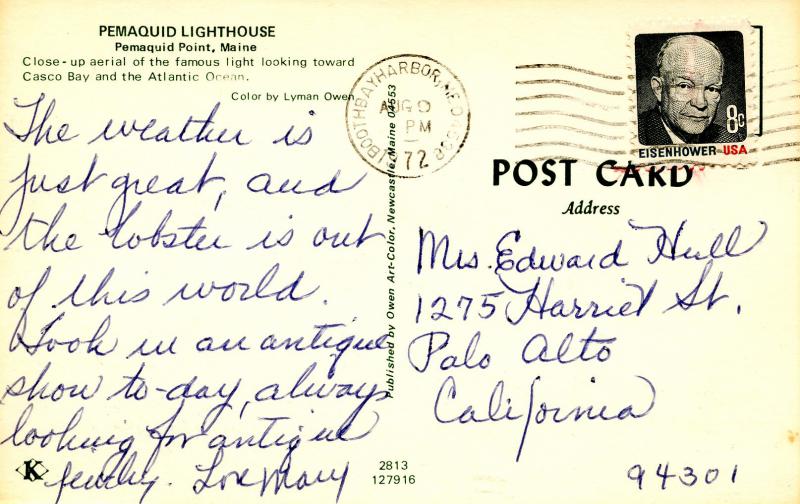 PEMAQUID LIGHTHOUSE
Pemaquid Point, Maine
Close-up aerial of the famous light looking toward
Casco Bay and the Atlantic Ocean.
Color by Lyman Owen
The weather is
just great, and
the lobster is out
of this world.
Took in an antique
show to-day, always
looking for antique
jewelry. Love Mary
K
2813
127916
Published by Owen Art-Color, Newcastle, Maine 04553
BOOTHBAY HARBOR, ME.
AUG
PM
1972
EISENHOWER USA
8c
POST CARD
Address
Mrs. Edward Hull
1275 Harriet St.
Palo Alto
California
94301